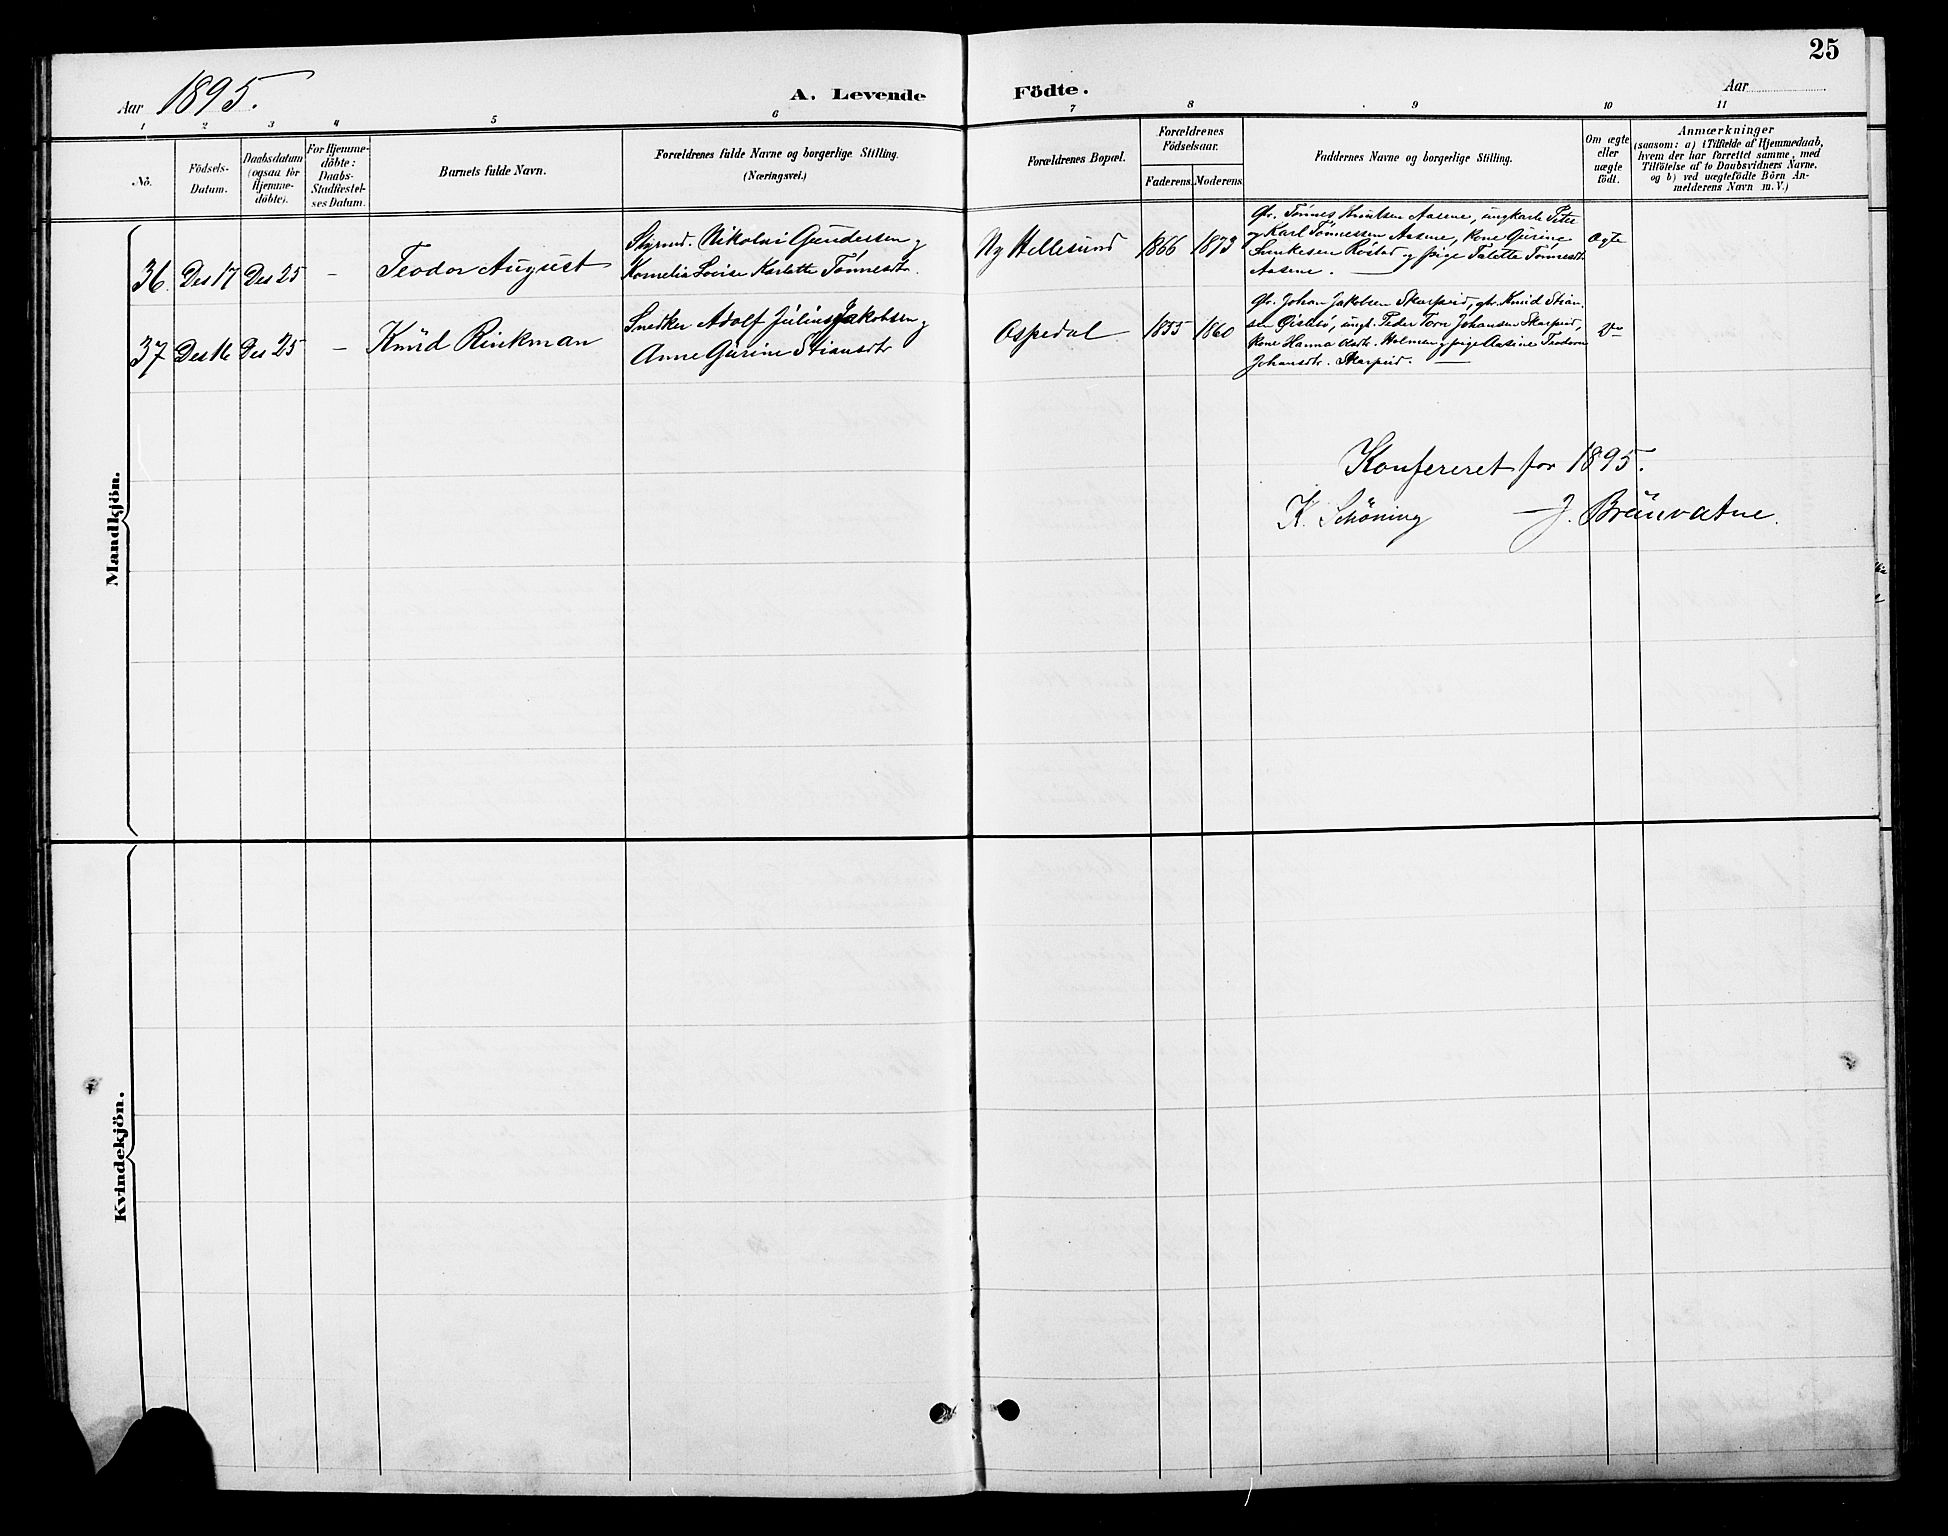 25
Aar 1895.
A. Levende Födte.
Aar
1 2 3 4 5 6 7 8 9 10 11
No.
Födsels-
Datum.
Daabsdatum
(ogsaa for
Hjemme-
döbte).
For Hjemme-
döbte:
Daabs-
Stadfæstel-
ses Datum.
Barnets fulde Navn.
Forældrenes fulde Navne og borgerlige Stilling.
(Næringsvei.)
Forældrenes Bopæl.
Forældrenes
Födselsaar.
Faderens. Moderens.
Faddernes Navne og borgerlige Stilling.
Om ægte
eller
uægte
födt.
Anmærkninger
(saasom: a) i Tilfælde af Hjemmedaab,
hvem der har forrettet samme, med
Tilföielse af to Daabsvidners Navne.
og b) ved uægtefödte Börn An-
melderens Navn m. V.)
Mandkjön.
36. Des 17 Des 25 - Teodor August
Styrmd. Nikolai Gundersen og
Kornelia Lovise Karlotte Tønnesdtr.
Ny Hellesund 1866 1873
Gbr. Tønnes Knutsen Aasene, ungkarle Peter
og Karl Tønnessen Aasene, kone Gurine
Røstad og pige Talette Tønnesdtr
Aasene.
Ægte
37 Des 16 Des 25 - Knud Rinkman
Snedker Adolf Julius Jakobsen og
Anne Gurine Stiansdtr
Ospedal 1855 1860
Gbr. Johan Jakobsen Skarpeid, gbr. Knud Stian-
sen Østebø, ungk. Peder Torn Johansen Skarpeid,
kone Hanna Olsdtr. Holmen og pige Aasine Teodora
Johansdtr. Skarpeid.
Do
Konfereret for 1895.
K. Schöning J. Brunvatne.
Kvindekjön.